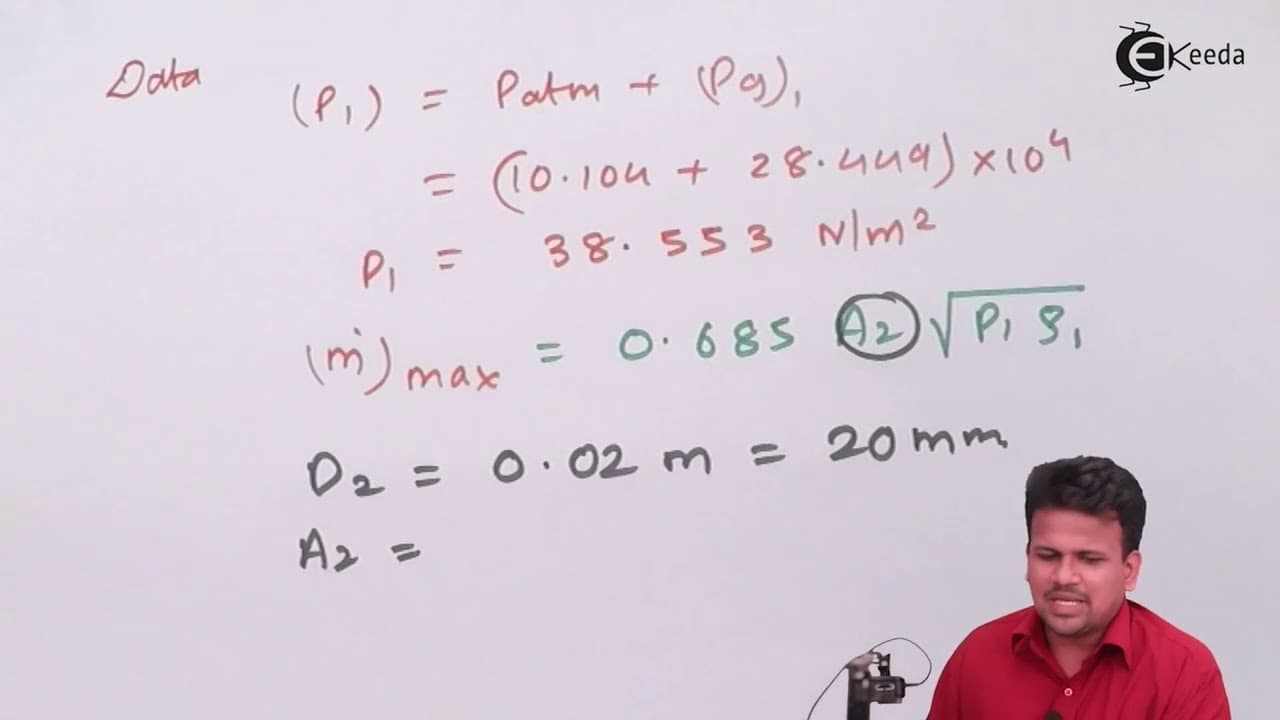 EKeeda
Data (P₁) = Patm + (Pg)₁
= (10.104 + 28.449) ×10⁴
P₁ = 38.553 N/m²
(ṁ)max = 0.685 A₂ √P₁ ρ₁
D₂ = 0.02 m = 20 mm
A₂ =